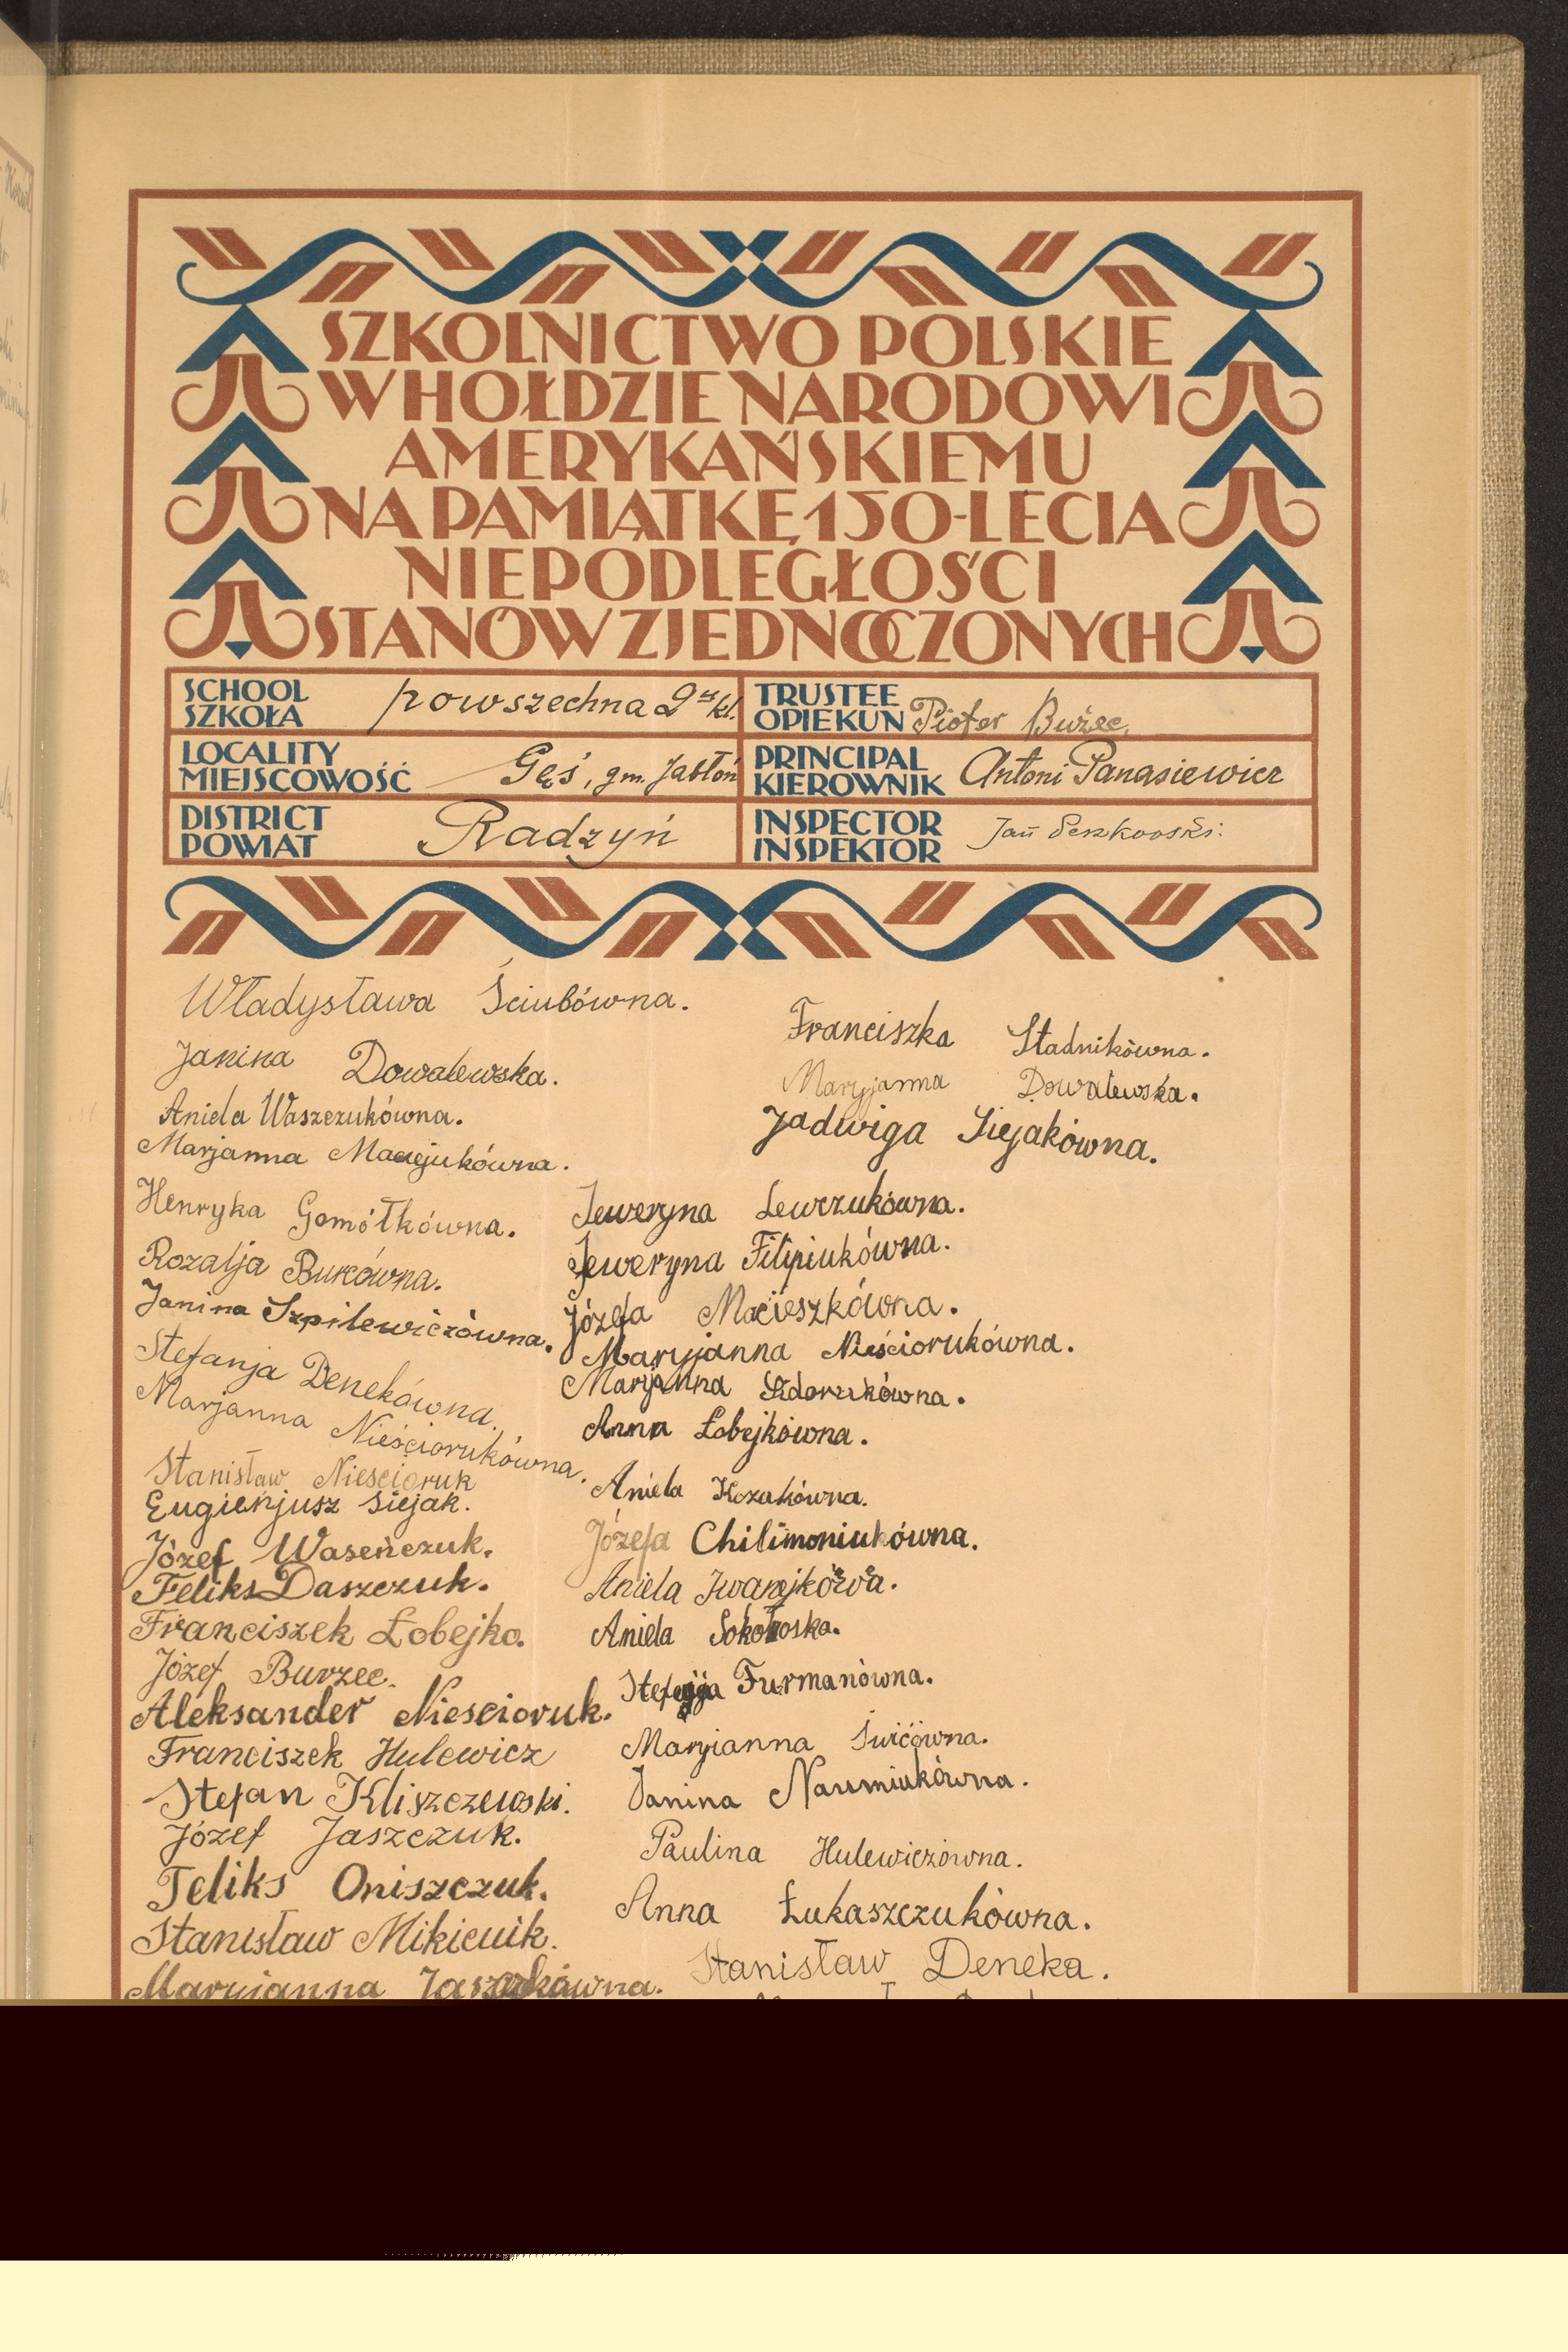 SZKOLNICTWO POLSKIE
W HOŁDZIE NARODOWI
AMERYKAŃSKIEMU
NA PAMIĄTKĘ 150-LECIA
NIEPODLEGŁOŚCI
STANÓW ZJEDNOCZONYCH
SCHOOL
SZKOŁA powszechna 2 kl.
TRUSTEE
OPIEKUN Piotr
LOCALITY
MIEJSCOWOŚĆ Gęś, gm. Jabłoń
PRINCIPAL
KIEROWNIK Antoni Panasiewicz
DISTRICT
POWIAT Radzyń
INSPECTOR
INSPEKTOR Jan
Władysława Ściubówna.
Janina Dowalewska.
Aniela Waszczukówna.
Marjanna Maciejukówna.
Henryka Gomółkówna.
Rozalja Burcówna.
Janina Szpilewiczówna.
Stefanja Denekówna.
Marjanna Nieściorukówna.
Stanisław Niescioruk
Eugienjusz Siejak.
Józef Waseńczuk.
Feliks Daszczuk.
Franciszek Łobejko.
Józef Burzec.
Aleksander Niescioruk.
Franciszek Hulewicz
Stefan Kliszczewski.
Józef Jaszczuk.
Feliks Oniszczuk.
Stanisław Mikiciuk.
Maryianna
Franciszka Stadnikówna.
Maryjanna Dowalewska.
Jadwiga Siejakówna.
Seweryna Lewczukówna.
Seweryna Filipiukówna.
Józefa Macieszkówna.
Maryjanna Nieściorukówna.
Maryjanna Sidorukówna.
Anna Łobejkówna.
Aniela Kozakówna.
Józefa Chilimoniukówna.
Aniela
Aniela
Stefanja Furmanówna.
Maryianna
Janina Naumiukówna.
Paulina Hulewiczówna.
Anna Łukaszczukówna.
Stanisław Deneka.